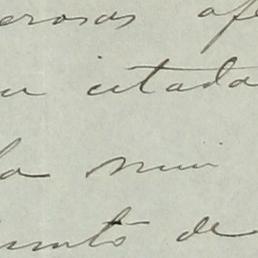 erosas afe
su citada
la mui
unto de